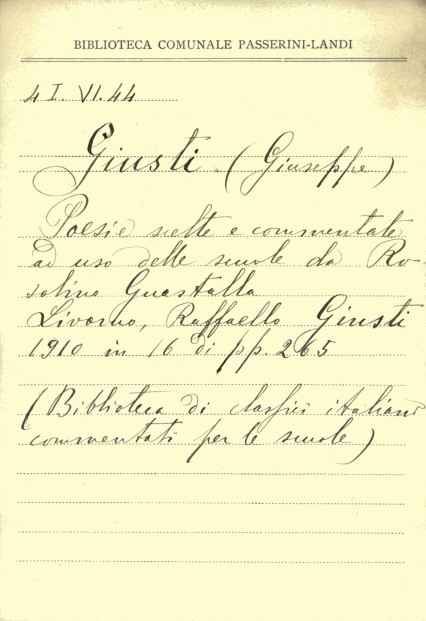 BIBLIOTECA COMUNALE PASSERINI-LANDI
4 I. VI. 44
Giusti (Giuseppe)
Poesie scelte e commentate
ad uso delle scuole da Ro-
solino Guastalla
Livorno, Raffaello Giusti
1910 in 16 di pp. 265
(Biblioteca di classici italiani
commentati per le scuole)